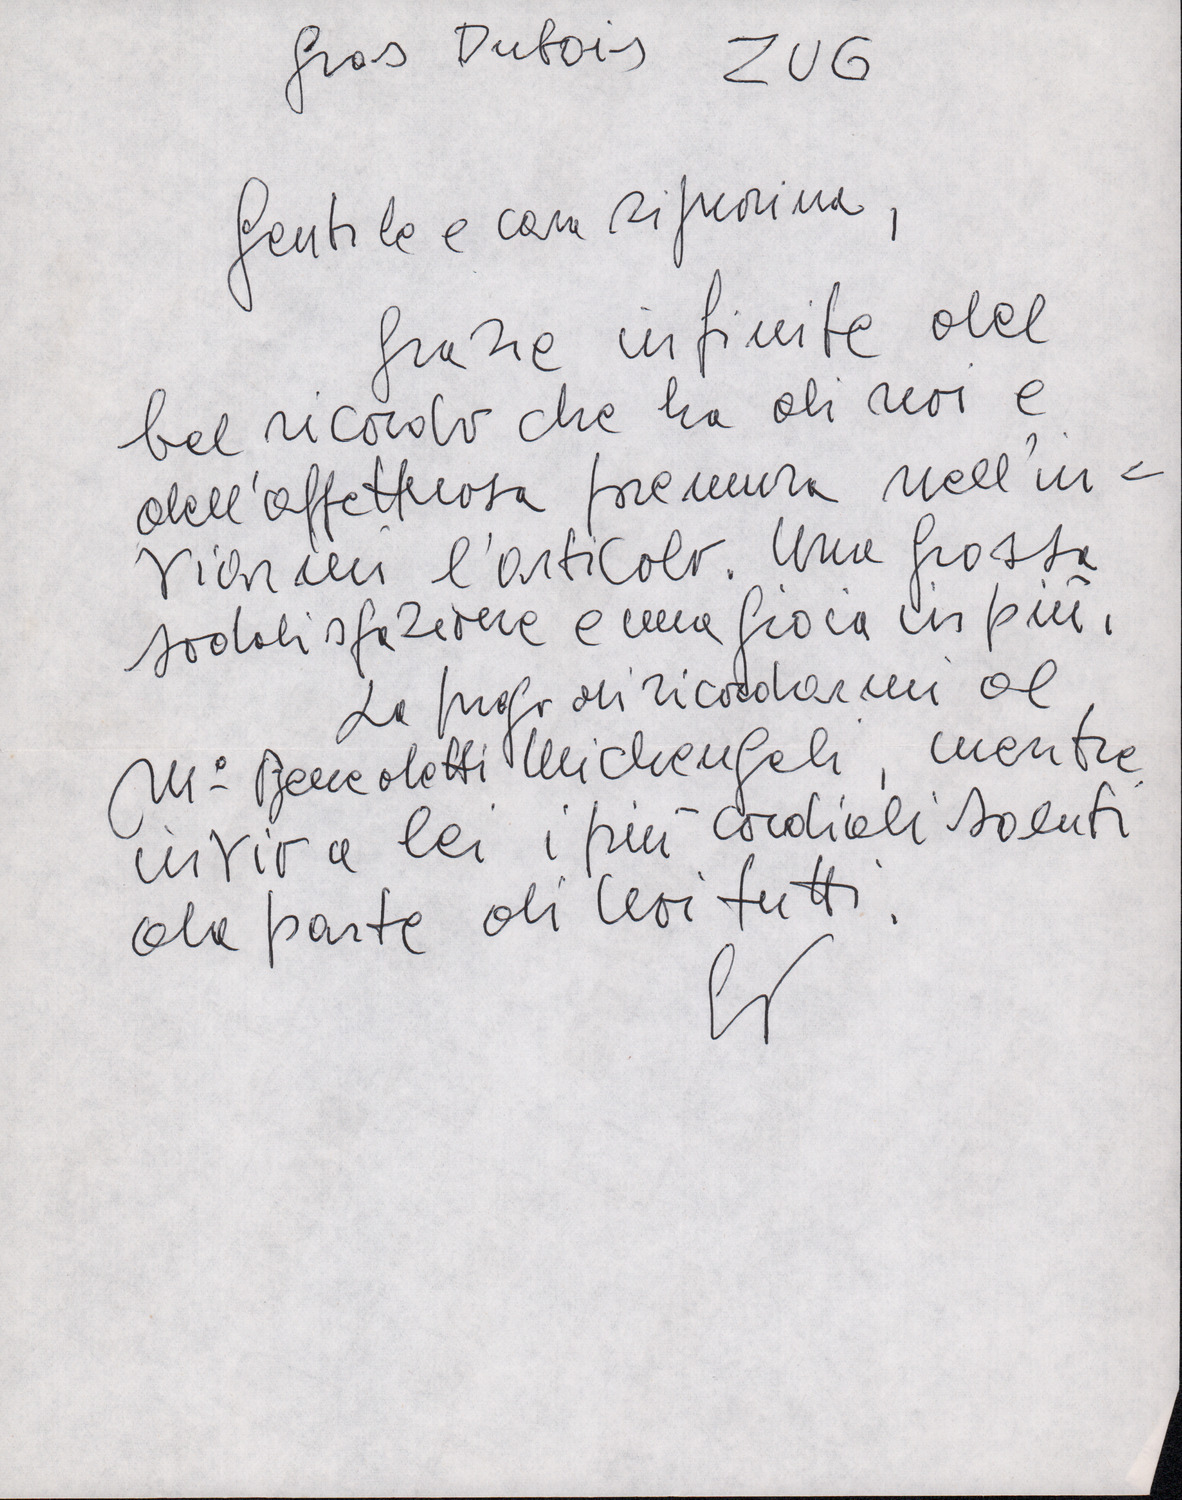 Gros Dubois ZUG
Gentile e cara signorina,
grazie infinite del
bel ricordo che ha di noi e
dell'affettuosa premura nell'in-
viarmi l'articolo. Una grossa
soddisfazione e una gioia in più.
La prego di ricordarmi al
M° Benedetti Michengeli, mentre
invio a lei i più cordiali saluti
da parte di noi tutti.